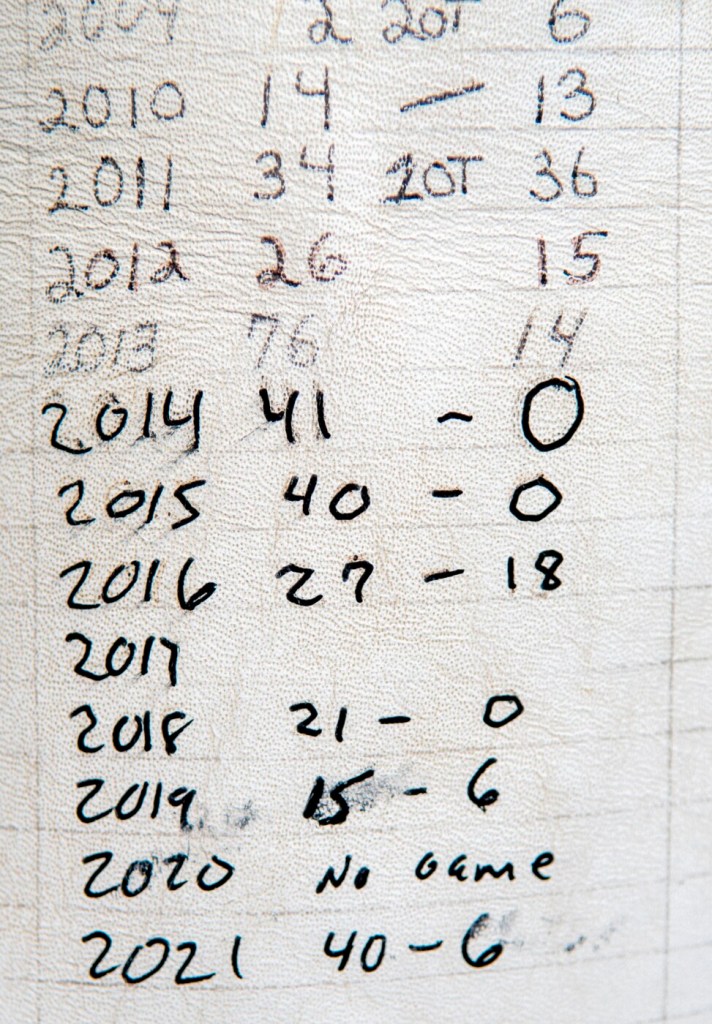 2009 2 2OT 6
2010 14 — 13
2011 34 1OT 36
2012 26 15
2013 76 14
2014 41 - 0
2015 40 - 0
2016 27 - 18
2017
2018 21 - 0
2019 15 - 6
2020 No Game
2021 40 - 6